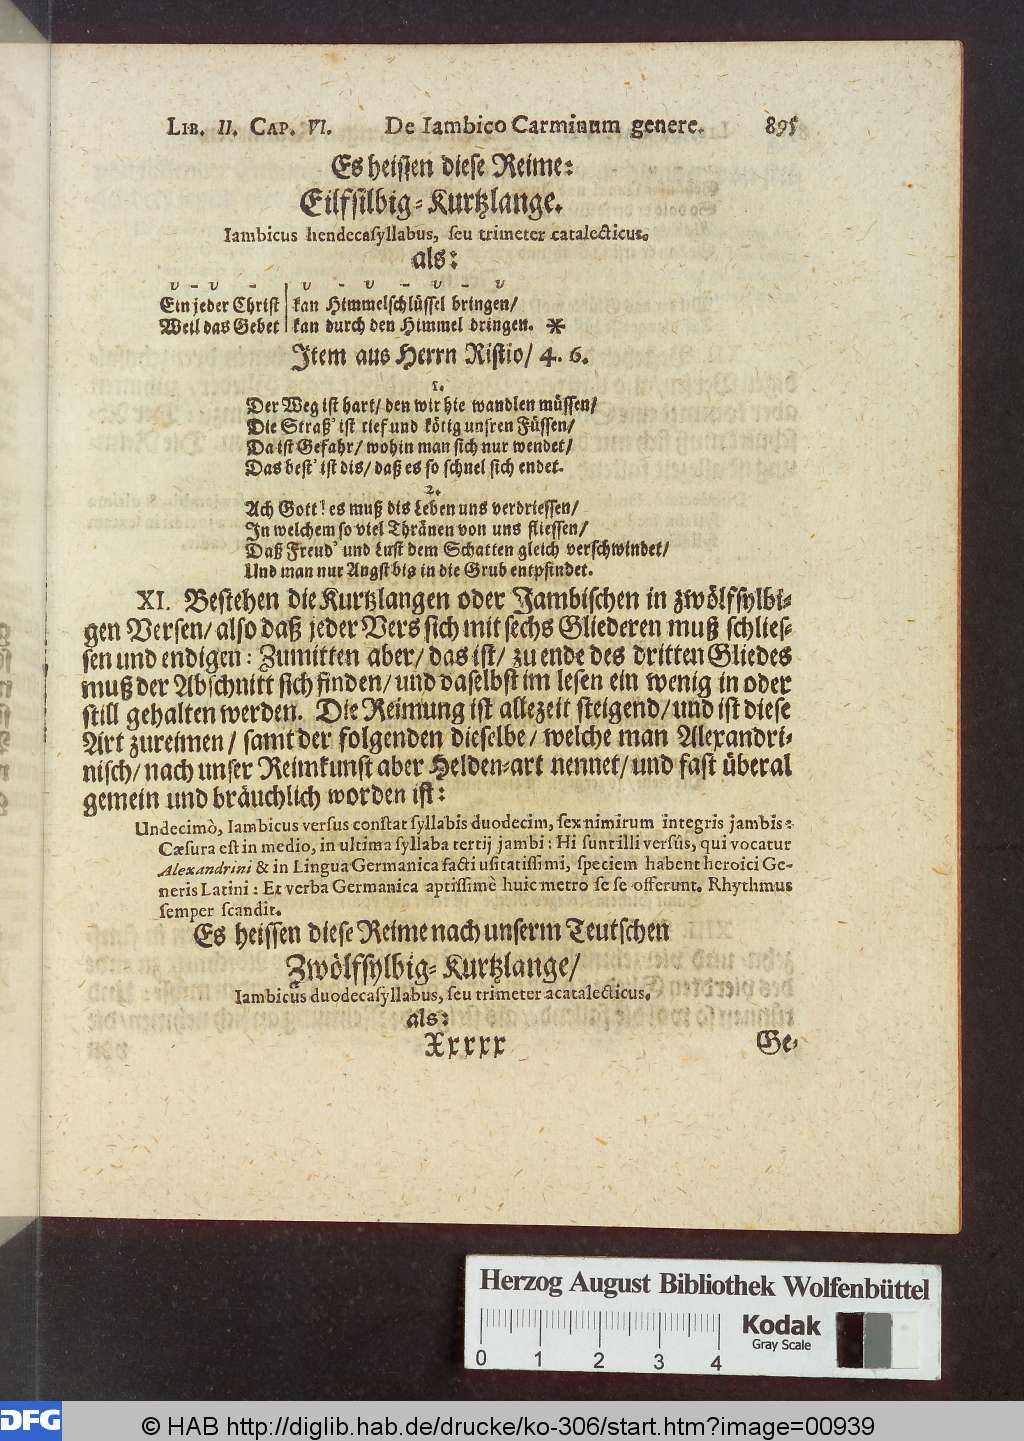 LIB. II. CAP. VI. De Iambico Carminum genere. 895
Es heissen diese Reime:
Eilfsilbig-Kurtzlange.
Iambicus hendecasyllabus, seu trimeter catalecticus.
als:
υ - υ - υ - υ - υ - υ
Ein jeder Christ | kan Himmelschlüssel bringen/
Weil das Gebet | kan durch den Himmel dringen. *
Item aus Herrn Ristio/ 4. 6.
1.
Der Weg ist hart/ den wir hie wandlen müssen/
Die Straß' ist tief und kötig unsren Füssen/
Da ist Gefahr/ wohin man sich nur wendet/
Das best' ist dis/ daß es so schnel sich endet.
2.
Ach Gott! es muß dis Leben uns verdriessen/
In welchem so viel Thränen von uns fliessen/
Daß Freud' und Lust dem Schatten gleich verschwindet/
Und man nur Angst bis in die Grub entpfindet.
XI. Bestehen die Kurtzlangen oder Jambischen in zwölfsylbi-
gen Versen/ also daß jeder Vers sich mit sechs Gliederen muß schlies-
sen und endigen: Zumitten aber/ das ist/ zu ende des dritten Gliedes
muß der Abschnitt sich finden/ und daselbst im lesen ein wenig in oder
still gehalten werden. Die Reimung ist allezeit steigend/ und ist diese
Art zureimen/ samt der folgenden dieselbe/ welche man Alexandri-
nisch/ nach unser Reimkunst aber Helden-art nennet/ und fast überal
gemein und bräuchlich worden ist:
Undecimò, Iambicus versus constat syllabis duodecim, sex nimirum integris jambis:
Cæsura est in medio, in ultima syllaba tertij jambi: Hi sunt illi versûs, qui vocatur
Alexandrini & in Lingua Germanica facti usitatissimi, speciem habent heroici Ge-
neris Latini: Et verba Germanica aptissimè huic metro se se offerunt. Rhythmus
semper scandit.
Es heissen diese Reime nach unserm Teutschen
Zwölfsylbig-Kurtzlange/
Iambicus duodecasyllabus, seu trimeter acatalecticus.
als:
Xxxxx Ge-
Herzog August Bibliothek Wolfenbüttel
Kodak
Gray Scale
0 1 2 3 4
DFG © HAB http://diglib.hab.de/drucke/ko-306/start.htm?image=00939